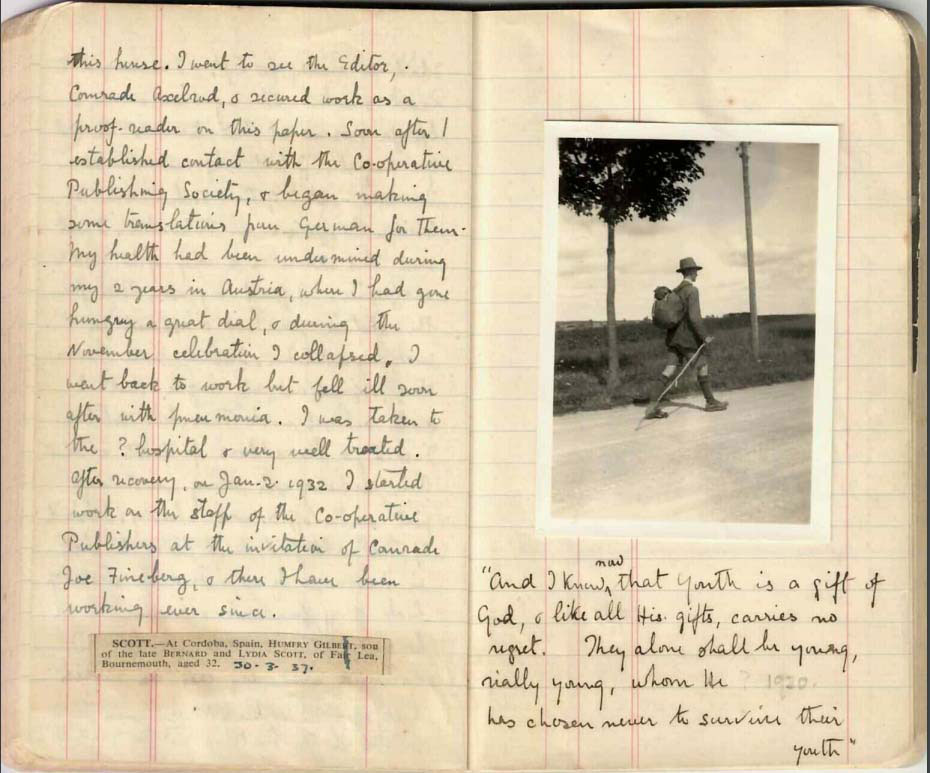 this house. I went to see the Editor,
Comrade Axelrod, & secured work as a
proof-reader on this paper. Soon after I
established contact with the Co-operative
Publishing Society, & began making
some translations from German for them.
My health had been undermined during
my 2 years in Austria, where I had gone
hungry a great deal, & during the
November celebration I collapsed. I
went back to work but fell ill soon
after with pneumonia. I was taken to
the ? hospital & very well treated.
After recovery, on Jan. 2. 1932 I started
work on the staff of the Co-operative
Publishers at the invitation of Comrade
Joe Fineberg, & there I have been
working ever since.
SCOTT.—At Cordoba, Spain, HUMFRY GILBERT, son
of the late BERNARD and LYDIA SCOTT, of Fair Lea,
Bournemouth, aged 32. 30·3·37.
"And I know now that Youth is a gift of
God, & like all His gifts, carries no
regret. They alone shall be young,
really young, whom He ? 1920.
has chosen never to survive their
youth"